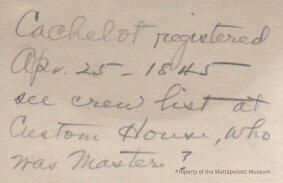 Cachelot registered
Apr. 25 - 1845
see crew list at
Custom House, who
was Master?
Property of the Mattapoisett Museum